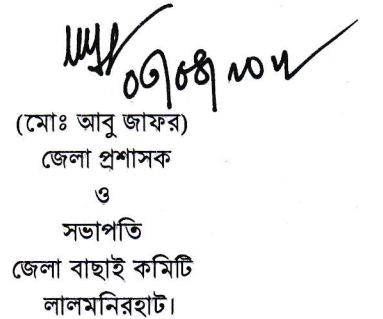 (মোঃ আবু জাফর)
জেলা প্রশাসক
ও
সভাপতি
জেলা বাছাই কমিটি
লালমনিরহাট।